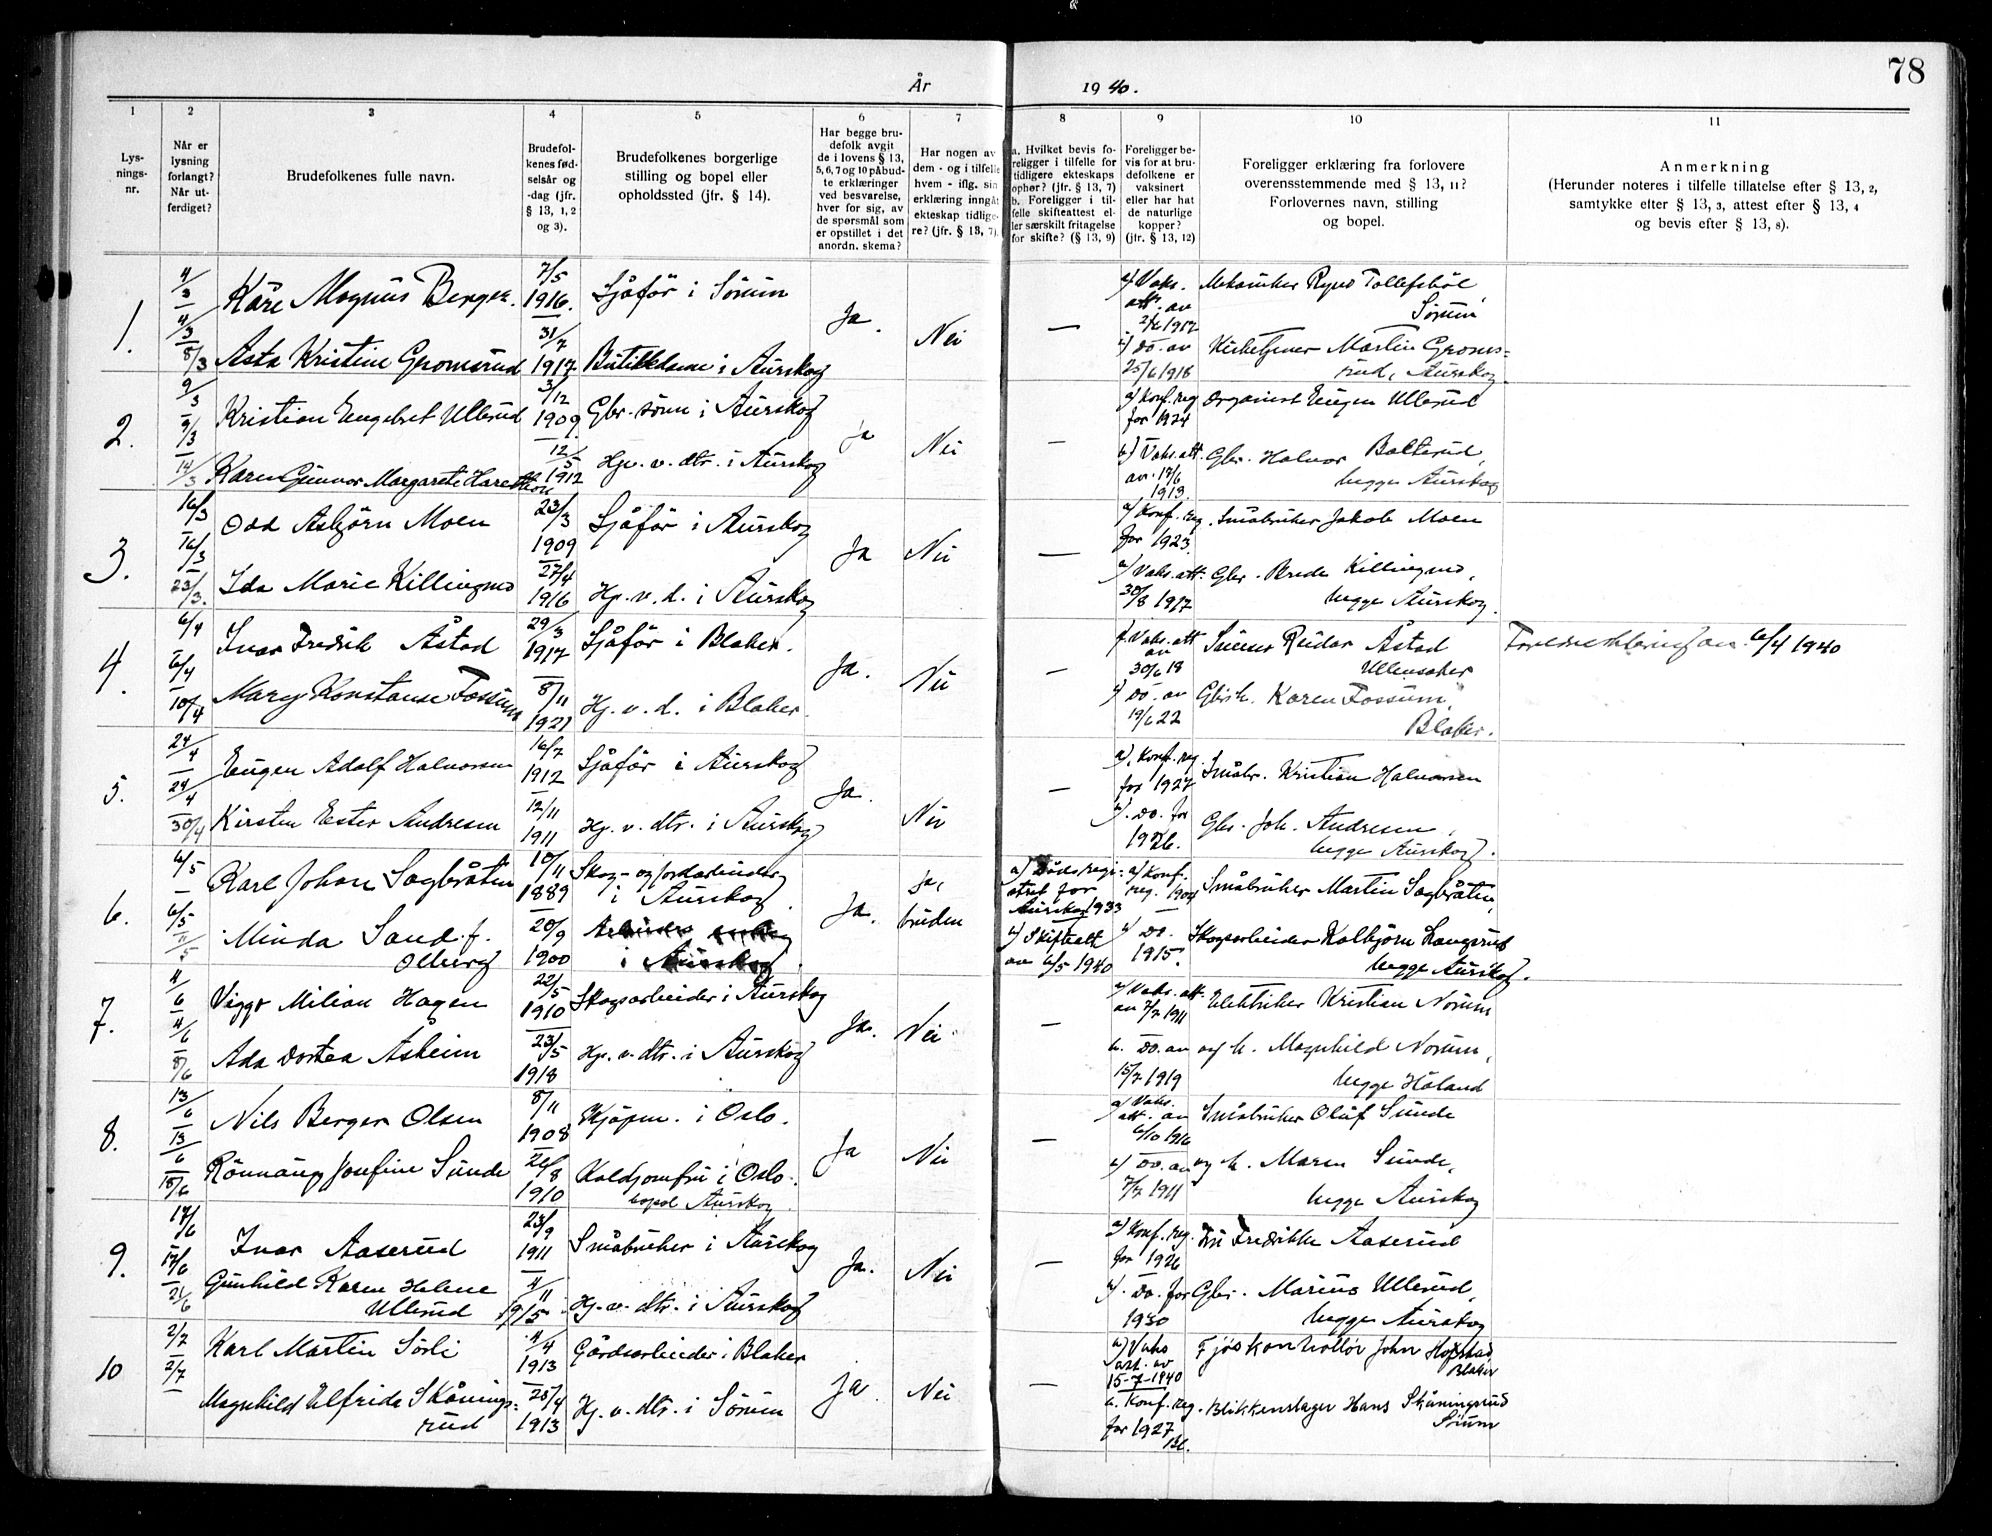 78
År 1940.
1
Lysnings-nr.
2
Når er lysning forlangt? Når utferdiget?
3
Brudefolkenes fulle navn.
4
Brudefolkenes fødselsår og -dag (jfr. § 13, 1, 2 og 3).
5
Brudefolkenes borgerlige stilling og bopel eller opholdssted (jfr. § 14).
6
Har begge brudefolk avgit de i lovens § 13, 5, 6, 7 og 10 påbudte erklæringer ved besvarelse, hver for sig, av de spørsmål som er opstillet i det anordn. skema?
7
Har nogen av dem - og i tilfelle hvem - iflg. sin erklæring inngått ekteskap tidligere? (jfr. § 13, 7).
8
a. Hvilket bevis foreligger i tilfelle for tidligere ekteskaps ophør? (jfr. § 13, 7) b. Foreligger i tilfelle skifteattest eller særskilt fritagelse for skifte? (§ 13, 9)
9
Foreligger bevis for at brudefolkene er vaksinert eller har hat de naturlige kopper? (jfr. § 13, 12)
10
Foreligger erklæring fra forlovere overensstemmende med § 13, 11? Forlovernes navn, stilling og bopel.
11
Anmerkning
(Herunder noteres i tilfelle tillatelse efter § 13, 2, samtykke efter § 13, 3, attest efter § 13, 4 og bevis efter § 13, 8).
1. 4/3 Kåre Magnus Berger. 7/5 1916. Sjåfør i Sørum Ja. Nei — a) Vaks. att. av 1917 Mekaniker Tollefsbøl, Sørum
4/3 8/3 Asta Kristine Gromsrud 31/7 1917 Butikkdame i Aurskog b) do. av 25/6 1918 Kirketjener Martin Gromsrud, Aurskog.
2. 9/3 Kristian Engebret Ullerud 3/12 1909 Gbr. sønn i Aurskog Ja Nei — a) Konf. reg. for 1924 Organist Eugen Ullerud
9/3 14/3 Karen Gunnor Margarete Harethon 12/5 1912 Hp. v. dtr. i Aurskog b) Vaks. att. av 17/6 1913. Gbr. Halvor Bolterud, begge Aurskog
3. 16/3 Odd Asbjørn Moen 23/3 1909 Sjåfør i Aurskog Ja Nei — a) Konf. reg. for 1923. Småbruker Jakob Moen
16/3 23/3. Ida Marie Killingmo 27/4 1916 Hp. v. d. i Aurskog b) Vaks. att. 30/8 1917 Gbr. Brede Killingmo, begge Aurskog.
4. 6/4 Ivar Fredrik Åstad 29/3 1917 Sjåfør i Blaker. Ja. Nei — a) Vaks. att av 30/6 18 Reidar Åstad Ullensaker 6/4 1940
6/4 10/4 Mary Konstanse Fossum 8/11 1921 Hj. v. d. i Blaker. b) do. av 19/6 22 Gbrsk. Karen Fossum, Blaker.
5. 24/4 Eugen Adolf Halvorsen 16/7 1912 Sjåfør i Aurskog Ja. Nei — a) Konf. reg. for 1927 Småbr. Kristian Halvorsen
24/4 30/4 Kirsten Ester Andresen 12/11 1911 Hp. v. dtr. i Aurskog b). do. for 1926. Gbr. Joh. Andresen, begge Aurskog.
6. 6/5 Karl Johan Sagbråten 10/11 1889 Skog- og jordarbeider i Aurskog. Ja. Ja, bruden a) Dødsregistret for Aurskog 1933 a) Konf. reg. 1904 Småbruker Martin Sagbråten,
6/5 11/5 Minda Sand f. Olberg 20/9 1900 i Aurskog. b) Skifteatt av 6/5 1940 b) do. 1915. Skogsarbeider Kolbjørn Langsrud begge Aurskog.
7. 4/6 Viggo Milian Hagen 22/5 1910 Skogsarbeider i Aurskog Ja. Nei — a) Vaks. att. av 7/7 1911 Elektriker Kristian Norum
4/6 8/6 Ada Dortea Åsheim 23/5 1918 Hp. v. dtr. i Aurskog b. do. av 15/7 1919 og h. Magnhild Norum, begge Høland
8. 13/6 Nils Berger Olsen 8/11 1908 Kjøpm. i Oslo. Ja Nei — a) Vaks. att. av 6/10 1916 Småbruker Oluf Sunde
13/6 18/6 Rønnaug Josefine Sunde 26/8 1910 Koldjomfru i Oslo. bopel Aurskog. b) do. av 7/7 1911 og h. Maren Sunde, begge Aurskog
9. 17/6 Ivar Aaserud 23/9 1911 Småbruker i Aurskog Ja. Nei — a) Konf. reg. for 1926 Fru Fredrikke Aaserud
17/6 21/6 Gunhild Karen Helene Ullerud 4/11 1915. Hj. v. dtr. i Aurskog b). do. for 1930 Gbr. Marius Ullerud, begge Aurskog
10 2/7 Karl Martin Sørli 4/4 1913 Gårdsarbeider i Blaker Ja. Nei a) Vaks att. av 15-7-1940 Fjøskontrollør John Hofstad, Blaker
2/7 Magnhild Elfrida Skåningsrud 25/4 1913 Hj. v. dtr. i Sørum b. Konf. reg. for 1927 Bl. Blikkenslager Hans Skåningsrud Sørum